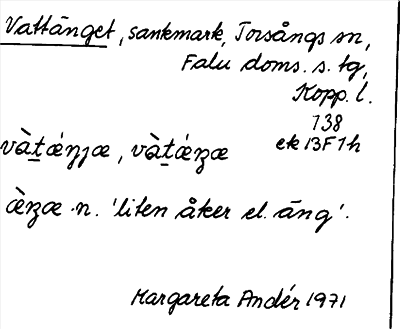 Vattänget, sankmark, Torsångs sn,
Falu doms. s. tg,
Kopp. l.
138
ek 13F1h
vàt̠ǽŋɟæ, vàt̠ǽȝæ
æ̀ȝæ n. 'liten åker el. äng'.
Margareta Andér 1971